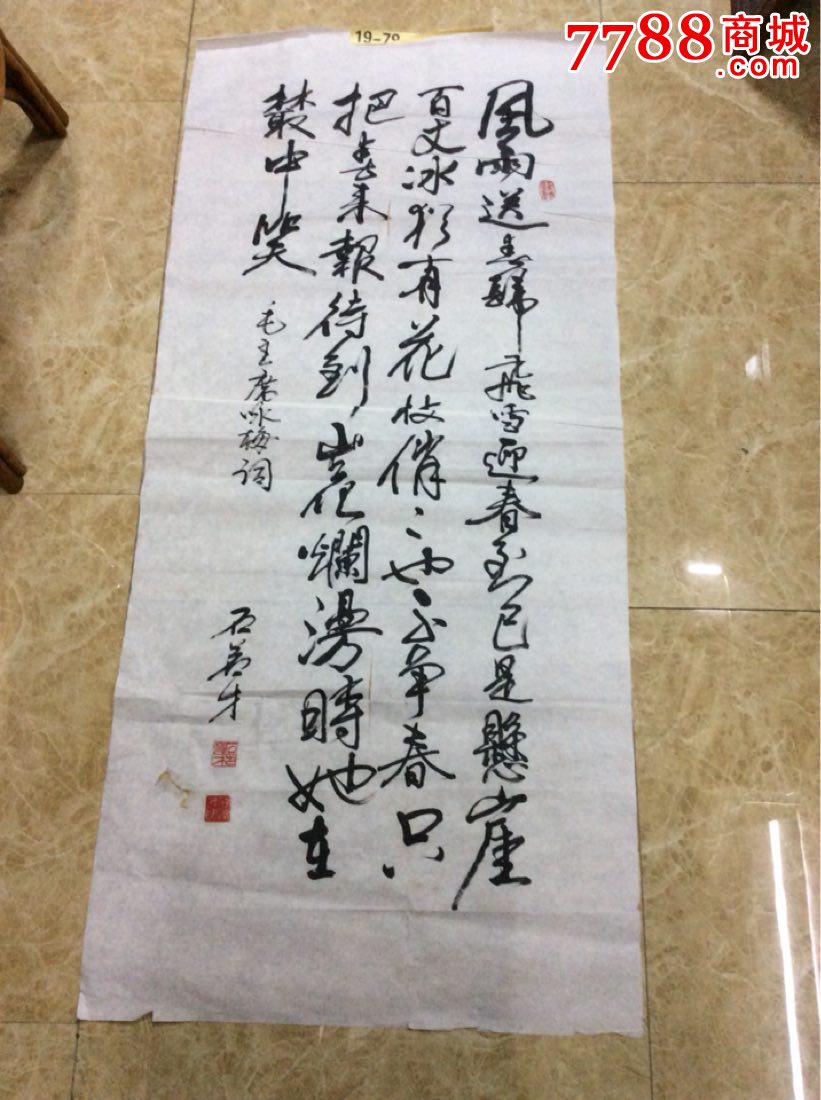 7788商城
.com
風雨送春歸飛雪迎春到已是懸崖
百丈冰犹有花枝俏〻也不争春只
把春来報待到山花爛漫時她在
叢中笑
毛主席咏梅词